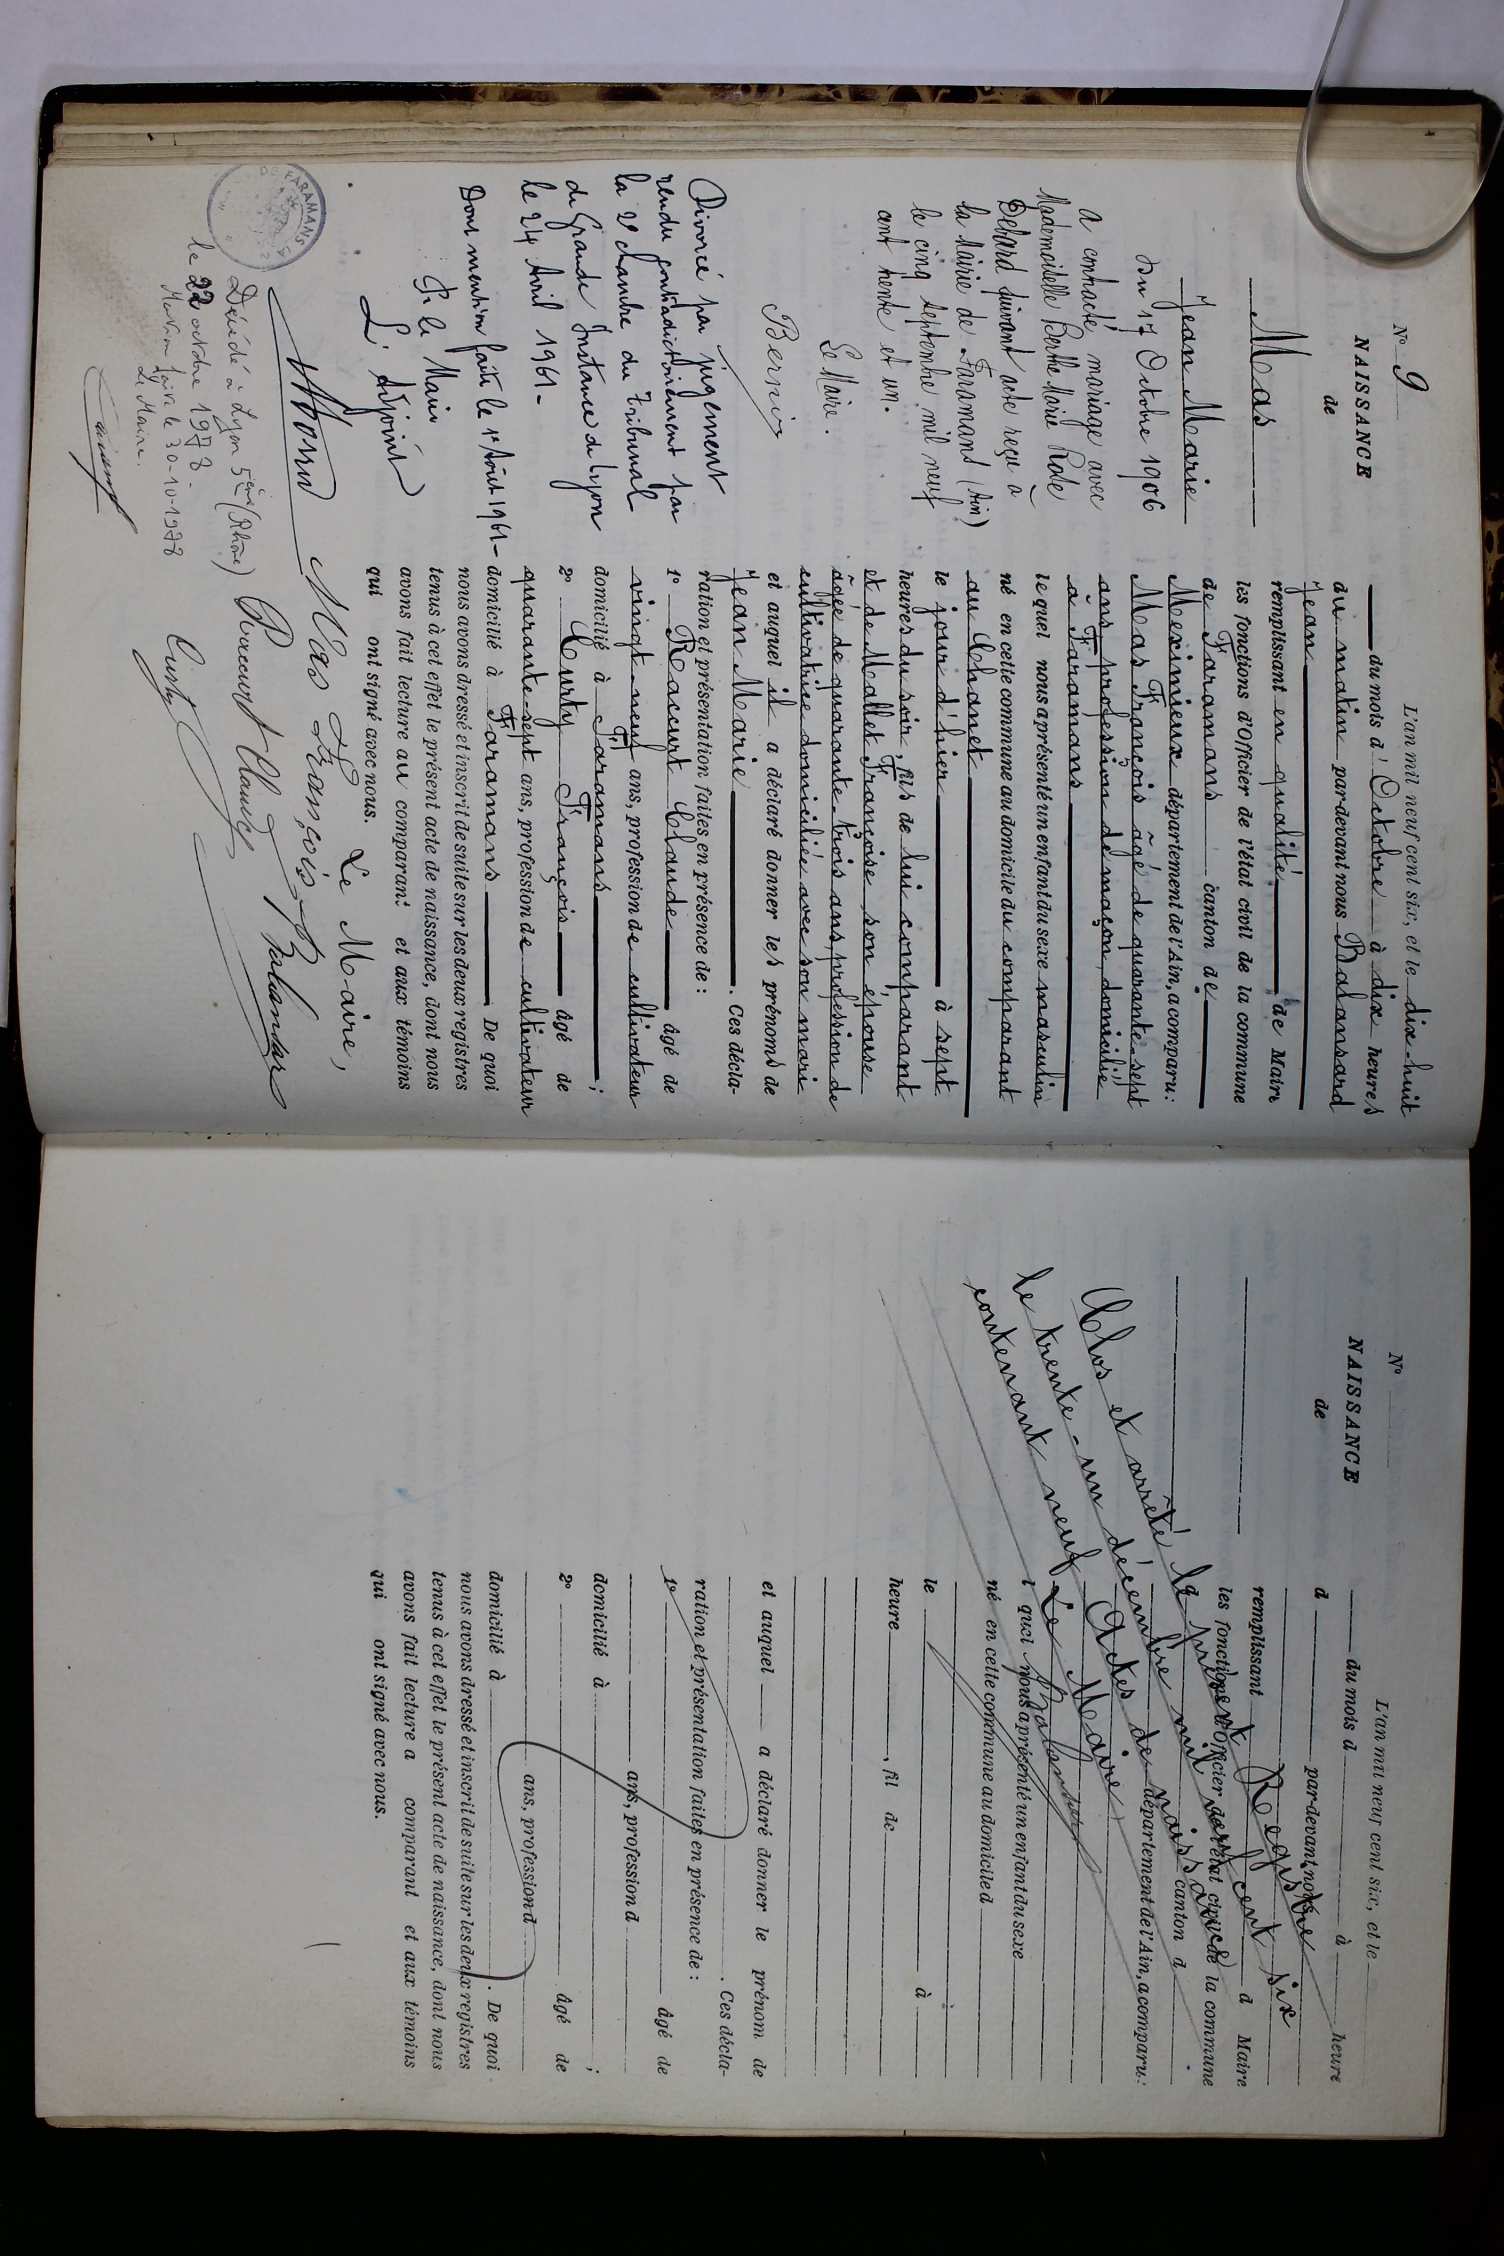 N° 9
NAISSANCE
de
Mas
Jean Marie
Du 17 Octobre 1906
a contracté mariage avec
Mademoiselle Berthe Marie Rose
suivant acte reçu à
la Mairie de Faramans (Ain)
le cinq Septembre mil neuf
cent trente et un.
Le Maire.
Divorcé par jugement
rendu contradictoirement par
la 2e chambre du Tribunal
de Grande Instance de Lyon
le 24 Avril 1961-
Dont mention faite le 1er Août 1961-
P. le Maire
L'Adjoint
DE FARAMANS
Décédé à Lyon 5ème (Rhône)
le 22 octobre 1978-
Mention faite le 30-10-1978
Le Maire.
L'an mil neuf cent six, et le dix-huit
du mois d'Octobre à dix heures
du matin par-devant nous Balansard
Jean
remplissant en qualité de Maire
les fonctions d'Officier de l'état civil de la commune
de Faramans canton de
Meximieux département de l'Ain, a comparu:
Mas François âgé de quarante-sept
ans profession de maçon, domicilié
à Faramans
lequel nous a présenté un enfant du sexe masculin
né en cette commune au domicile du comparant
au Chanet
le jour d'hier à sept
heures du soir, fils de lui comparant
et de Mallet Françoise, son épouse
âgée de quarante-trois ans, profession de
cultivatrice domiciliée avec son mari
et auquel il a déclaré donner les prénoms de
Jean Marie. Ces décla-
ration et présentation faites en présence de:
1° Raccurt Claude âgé de
vingt-neuf ans, profession de cultivateur
domicilié à Faramans;
2° Curty François âgé de
quarante-sept ans, profession de cultivateur
domicilié à Faramans. De quoi
nous avons dressé et inscrit de suite sur les deux registres
tenus à cet effet le présent acte de naissance, dont nous
avons fait lecture au comparant et aux témoins
qui ont signé avec nous. Le Maire,
Mas François
Raccurt Claude
Balansard
Curty
N°
NAISSANCE
de
Clos et arrêté le présent Registre
le trente-un décembre mil neuf cent six
contenant neuf Actes de naissance
Le Maire
Balansard
L'an mil neuf cent six, et le
du mois d à heure
d par-devant nous
remplissant d Maire
les fonctions d'Officier de l'état civil de la commune
canton d
département de l'Ain, a comparu:
l quel nous a présenté un enfant du sexe
né en cette commune au domicile d
le à
heure, fil de
et auquel a déclaré donner le prénom de
. Ces décla-
ration et présentation faites en présence de:
1° âgé de
ans, profession d
domicilié à ;
2° âgé de
ans, profession d
domicilié à . De quoi
nous avons dressé et inscrit de suite sur les deux registres
tenus à cet effet le présent acte de naissance, dont nous
avons fait lecture a comparant et aux témoins
qui ont signé avec nous.